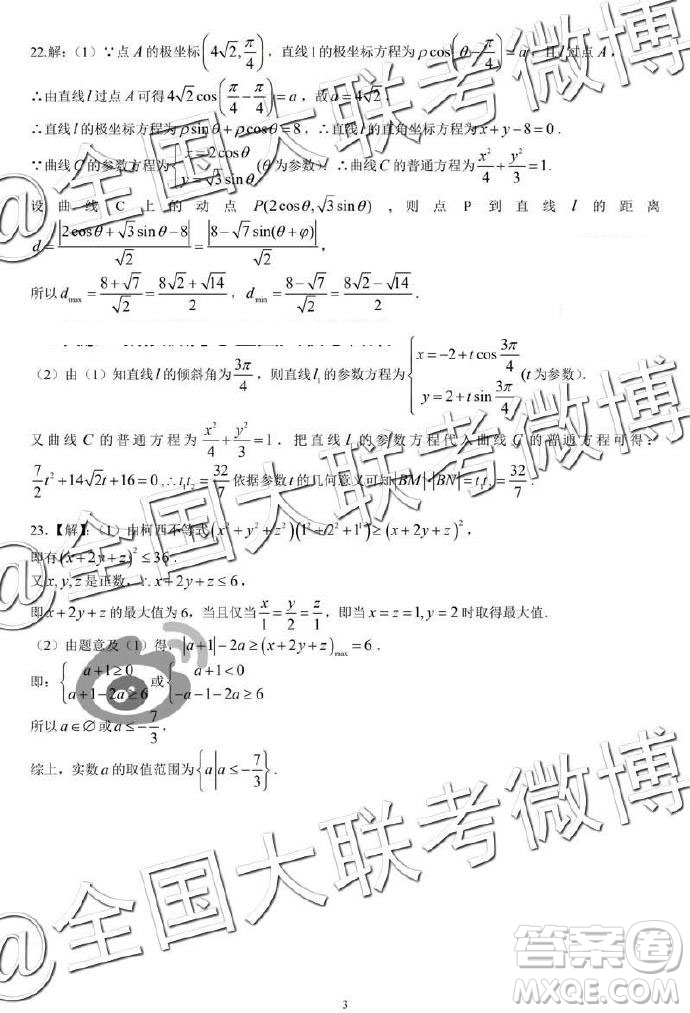 22.解:（1）∵点 A 的极坐标(4√2, π/4)，直线 l 的极坐标方程为 ρcos(θ−π/4)=a，且 l 过点 A，
∴由直线 l 过点 A 可得 4√2cos(π/4−π/4)=a，故 a=4√2，
∴直线 l 的极坐标方程为 ρsinθ+ρcosθ=8，∴直线 l 的直角坐标方程为 x+y−8=0.
∵曲线 C 的参数方程为{x=2cosθ y=√3sinθ(θ 为参数)，∴曲线 C 的普通方程为 x²/4+y²/3=1.
设曲线 C 上的动点 P(2cosθ,√3sinθ)，则点 P 到直线 l 的距离
d=|2cosθ+√3sinθ−8|/√2=|8−√7sin(θ+φ)|/√2，
所以 d_max=(8+√7)/√2=(8√2+√14)/2，d_min=(8−√7)/√2=(8√2−√14)/2.
（2）由（1）知直线 l 的倾斜角为 3π/4，则直线 l₁ 的参数方程为{x=−2+tcos3π/4 y=2+tsin3π/4 (t 为参数).
又曲线 C 的普通方程为 x²/4+y²/3=1．把直线 l₁ 的参数方程代入曲线 C 的普通方程可得：
7/2 t²+14√2t+16=0，∴t₁t₂=32/7 依据参数 t 的几何意义可知|BM|·|BN|=|t₁t₂|=32/7.
23.【解】:（1）由柯西不等式(x²+y²+z²)(1²+2²+1²)≥(x+2y+z)²，
即有(x+2y+z)²≤36.
又 x,y,z 是正数，∴x+2y+z≤6，
即 x+2y+z 的最大值为 6，当且仅当 x/1=y/2=z/1，即当 x=z=1,y=2 时取得最大值.
（2）由题意及（1）得，|a+1|−2a≥(x+2y+z)_max=6.
即：{a+1≥0 a+1−2a≥6 或{a+1<0 −a−1−2a≥6
所以 a∈∅ 或 a≤−7/3，
综上，实数 a 的取值范围为{a|a≤−7/3}.
@全国大联考微博
@全国大联考微博
@全国大联考微博
答案卷
MXQE.COM
3